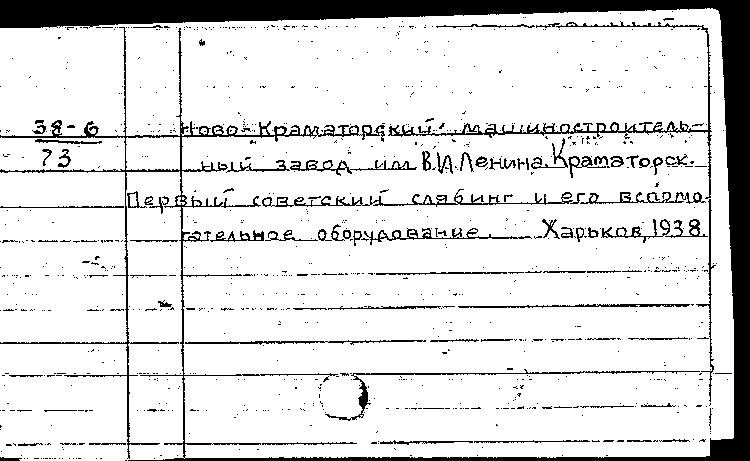 38-6
73
Ново-Краматорский машиностроитель-
ный завод им В.И.Ленина. Краматорск.
Первый советский слябинг и его вспомо-
гательное оборудование. Харьков, 1938.